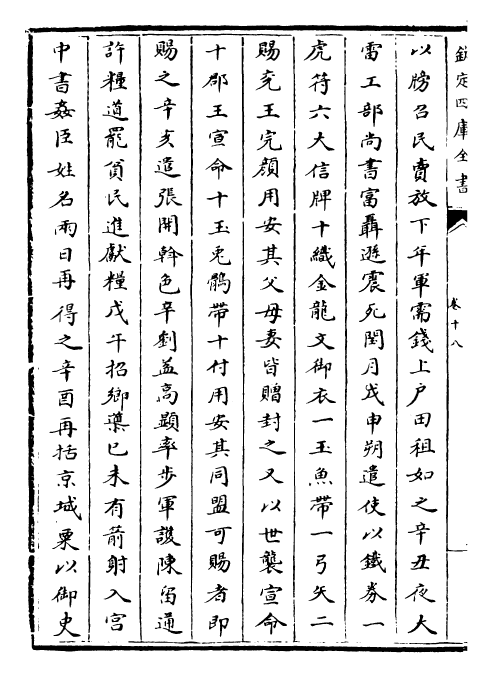 欽定四庫全書
卷十八
以牓召民賣放下年軍需錢上户田租如之辛丑夜大
雷工部尚書富聶遜震死閏月戊申朔遣使以鐵券一
虎符六大信牌十織金龍文御衣一玉魚帶一弓矢二
賜兖王完顔用安其父母妻皆贈封之又以世襲宣命
十郡王宣命十玉兎鶻帶十付用安其同盟可賜者即
賜之辛亥遣張開斡色辛劉益高顯率步軍護陳留通
許糧道罷貧民進獻糧戊午招鄉藥已未有箭射入宫
中書姦臣姓名兩日再得之辛酉再括京城粟以御史